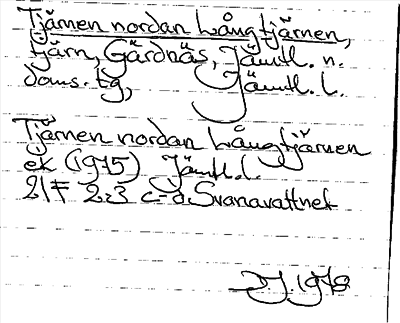 Tjärnen nordan Långtjärnen,
tjärn, Gärdnäs, Jämtl. n.
doms. tg, Jämtl. l.
Tjärnen nordan Långtjärnen
ek (1975) Jämtl. l.
21F 2-3 c-d Svanavattnet
D.J. 1978